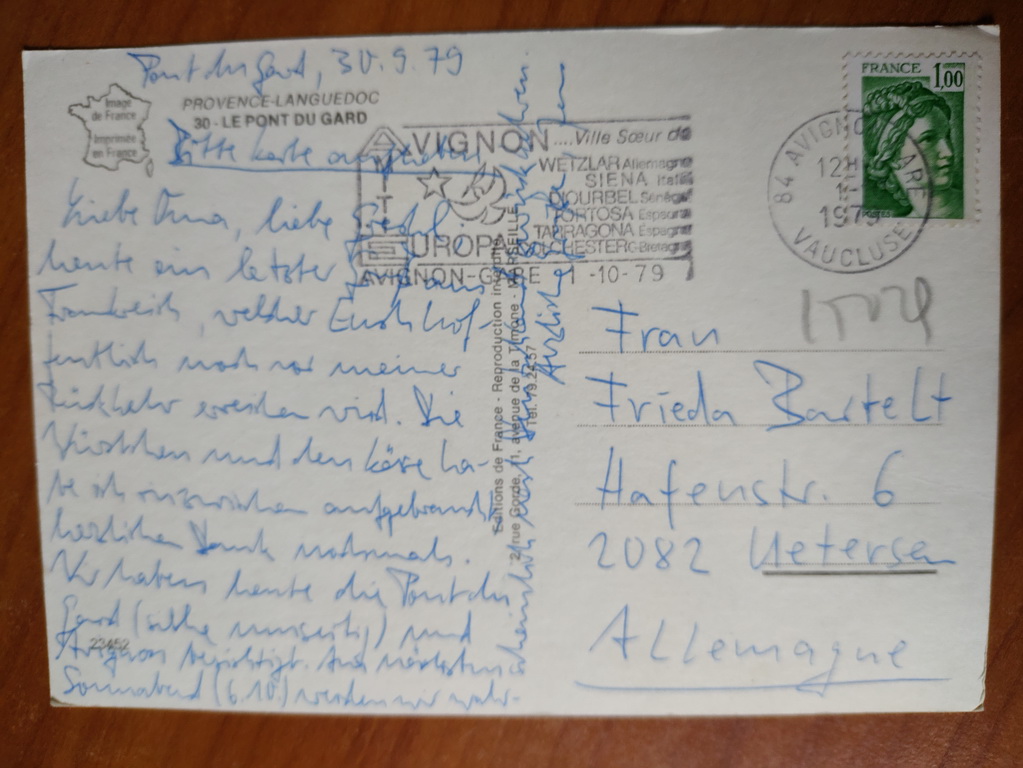 Pont du Gard, 30.9.79
Image
de France
Imprimée
en France
PROVENCE-LANGUEDOC
30 - LE PONT DU GARD
Bitte Karte aufheben
Liebe Oma, liebe
heute ein letzter aus
Frankreich, welcher Euch hof-
fentlich noch vor meiner
Rückkehr erreichen wird. Die
Würstchen und den Käse ha-
be ich inzwischen aufgebraucht
herzlichen Dank nochmals.
Wir haben heute die Pont du
Gard (siehe umseitig) und
Avignon besichtigt. Am nächsten
Sonnabend (6.10.) werden wir wahr-
scheinlich
23452
Editions de France - Reproduction interdite
2, rue Gorde, 11, avenue de la Timone - MARSEILLE
Tél. 79.22.57
AVIGNON ....Ville Sœur de
WETZLAR Allemagne
SIENA Italie
DIOURBEL Sénégal
TORTOSA Espagne
TARRAGONA Espagne
COLCHESTER G-Bretagne
EUROPA
AVIGNON-GARE 1-10-79
84 AVIGNON GARE
12H
1-
1979
VAUCLUSE
FRANCE 1,00
Frau
Frieda Bartelt
Hafenstr. 6
2082 Uetersen
Allemagne